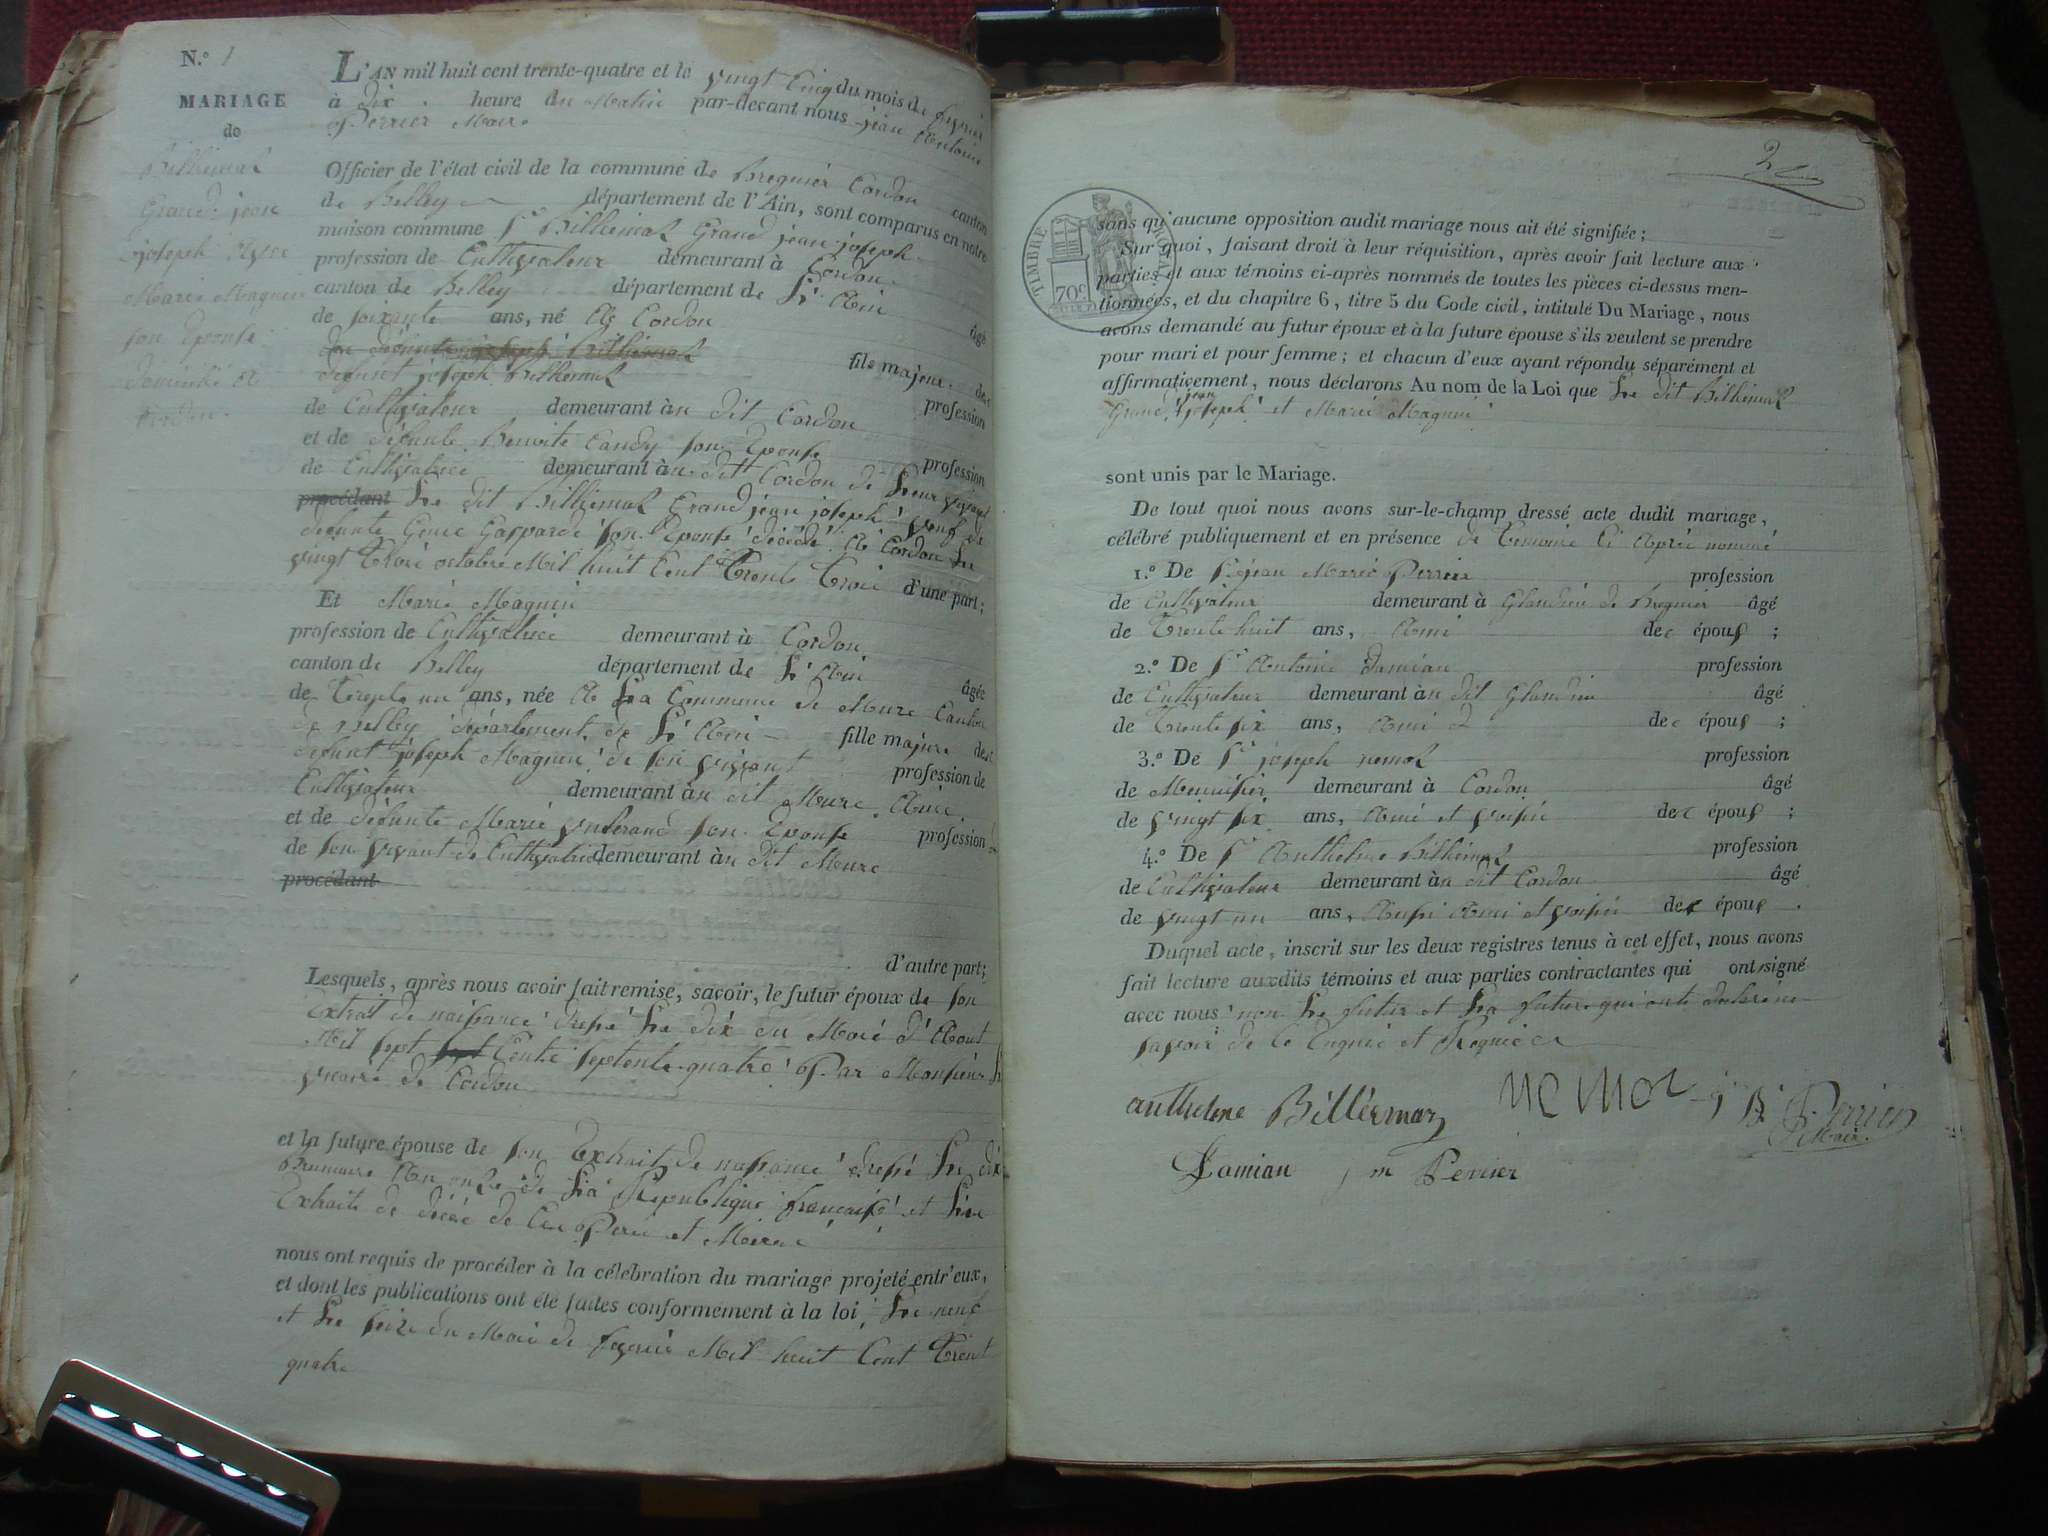 N.º 1
MARIAGE
de
Billiemaz
Grand jean
joseph Avec
Marie Magnin
son Epouse
domicilié A
Cordon.
L'AN mil huit cent trente-quatre et le vingt Cinq du mois de fevrier
à dix heure du Matin par-devant nous jean Antoine
Perrier Maire
Officier de l'état civil de la commune de Bregnier Cordon canton
de Belley département de l'Ain, sont comparus en notre
maison commune Sr Billiemaz Grand jean joseph
profession de Cultivateur demeurant à Cordon
canton de Belley département de L'Ain âgé
de soixante ans, né A Cordon
fils majeur de
défunt joseph Billiemaz profession
de Cultivateur demeurant à u dit Cordon
et de défunte Benoite Candy son Epouse profession
de Cultivatrice demeurant à u dit Cordon de Leur vivant
procédant Le dit Billiemaz Grand jean joseph veuf de
défunte Gasparde son Epouse décédé A Cordon Le
vingt Trois octobre Mil huit Cent Trente Trois d'une part;
Et Marie Magnin
profession de Cultivatrice demeurant à Cordon
canton de Belley département de L'Ain âgée
de Trente un ans, née A La Commune de Mure Canton
de Belley département de L'Ain fille majure de
défunt joseph Magnin de son vivant profession de
Cultivateur demeurant à u dit Mure Ain
et de défunte Marie son Epouse profession
de son vivant de Cultivatrice demeurant à u dit Mure
procédant
d'autre part;
Lesquels, après nous avoir fait remise, savoir, le futur époux de son
Extrait de naissance dressé Le dix du Mois d'Aout
Mil sept sept Cents septente quatre Par Monsieur Le
vicaire de Cordon
et la future épouse de son Extrait de naissance dressé Le dix
Brumaire An onze de La Republique française et Les
Extraits de décès de Ces Père et Mère
nous ont requis de procéder à la célébration du mariage projeté entr'eux,
et dont les publications ont été faites conformément à la loi, Le neuf
et Le seize du Mois de fevrier Mil huit Cent Trente
quatre
2
TIMBRE ROYAL
70c
sans qu'aucune opposition audit mariage nous ait été signifiée;
Sur quoi, faisant droit à leur réquisition, après avoir fait lecture aux
parties et aux témoins ci-après nommés de toutes les pièces ci-dessus men-
tionnées, et du chapitre 6, titre 5 du Code civil, intitulé Du Mariage, nous
avons demandé au futur époux et à la future épouse s'ils veulent se prendre
pour mari et pour femme; et chacun d'eux ayant répondu séparément et
affirmativement, nous déclarons Au nom de la Loi que Le dit Billiemaz
Grand jean joseph et Marie Magnin
sont unis par le Mariage.
De tout quoi nous avons sur-le-champ dressé acte dudit mariage,
célébré publiquement et en présence de Temoins Ci Après nommé
1.º De Sr jean Marie Perrier profession
de Cultivateur demeurant à Glandieu de Bregnier âgé
de Trente huit ans, Ami des époux ;
2.º De Sr Antoine Damian profession
de Cultivateur demeurant à u dit Glandieu âgé
de Trente six ans, Ami des époux ;
3.º De Sr joseph nemoz profession
de Menuisier demeurant à Cordon âgé
de vingt six ans, Ami et voisin des époux ;
4.º De Sr Anthelme Billiemaz profession
de Cultivateur demeurant à u dit Cordon âgé
de vingt un ans, Aussi Ami et voisin des époux .
Duquel acte, inscrit sur les deux registres tenus à cet effet, nous avons
fait lecture auxdits témoins et aux parties contractantes qui ont signé
avec nous non Le futur et La future qui ont declaré ne
savoir de Ce Enquis et Requis
anthelme Billiemaz nemoz j A Perrier
Maire.
Damian j m Perrier